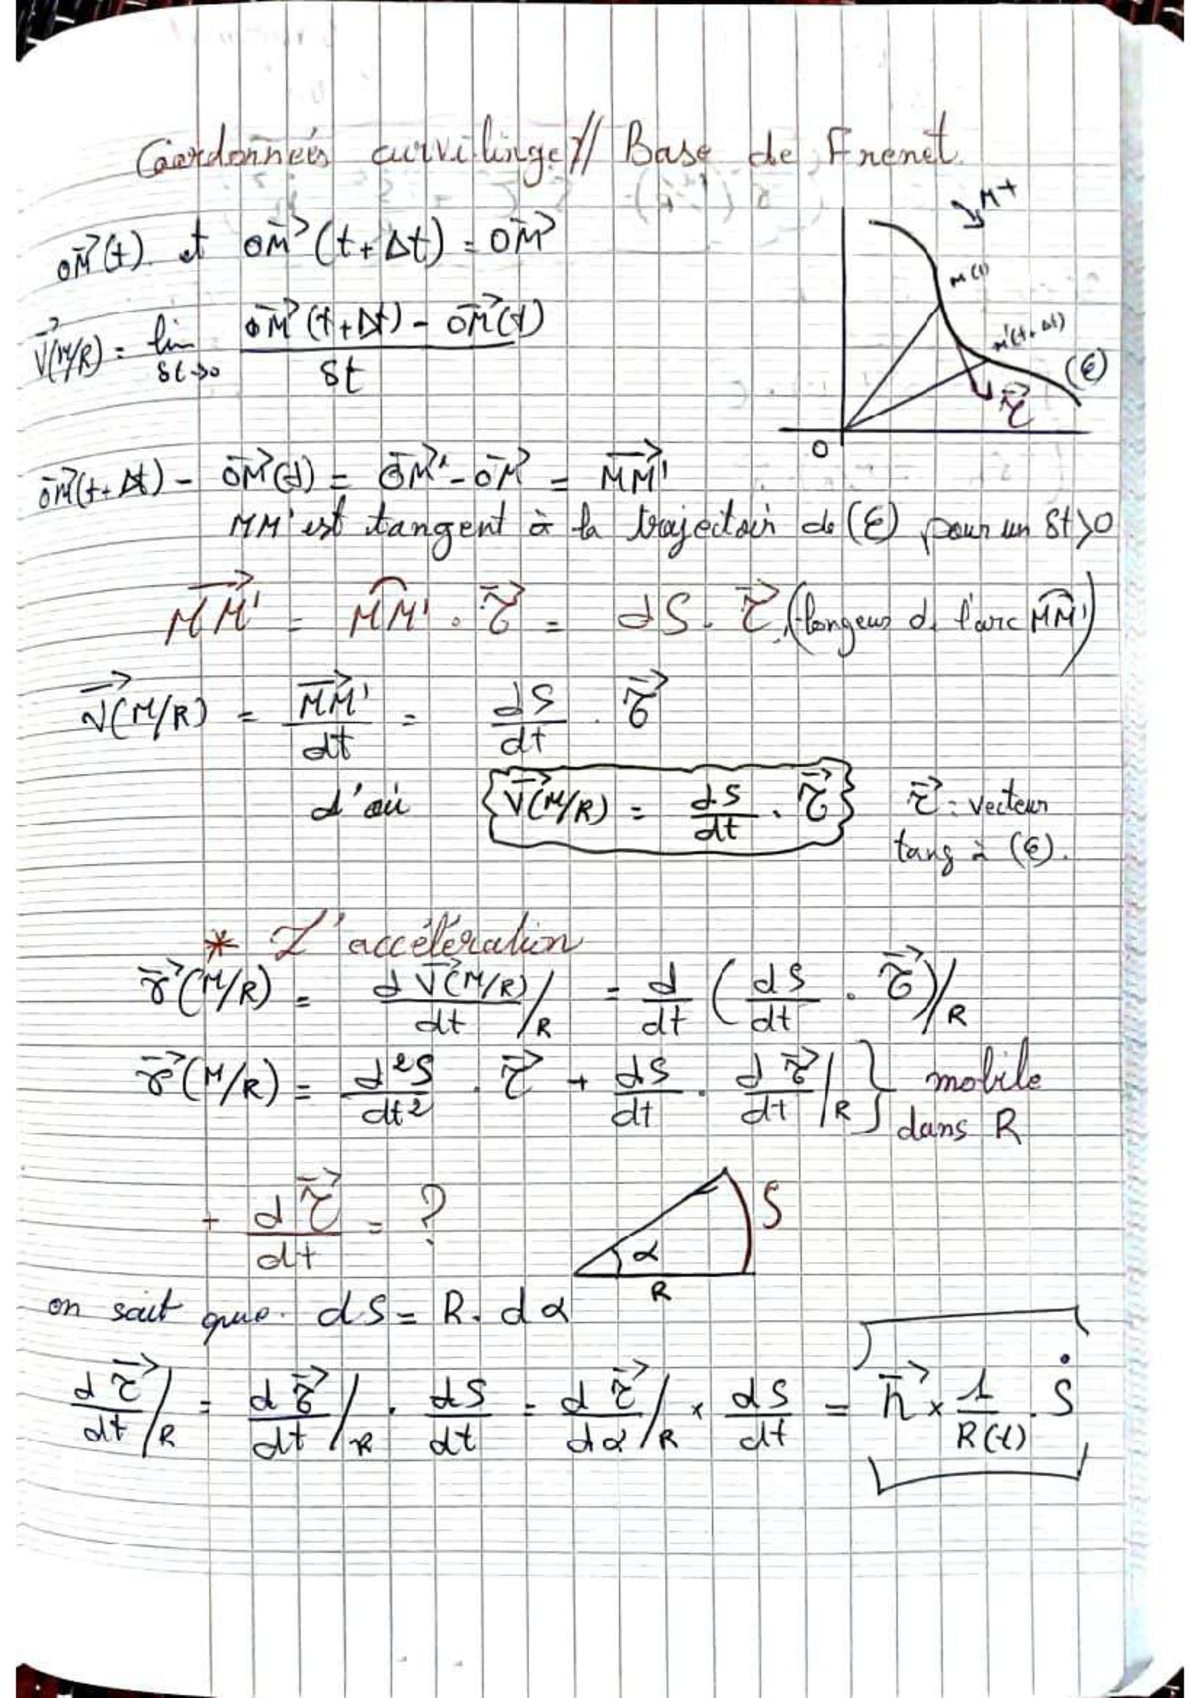 Coordonnées curvilinge // Base de Frenet
OM⃗(t) et OM⃗(t+Δt) = OM⃗
M+
M(t)
M'(t+Δt)
(ℰ)
τ⃗
O
V⃗(M/R) = lim δt→0 (OM⃗(t+Δt) - OM⃗(t)) / δt
OM⃗(t+Δt) - OM⃗(t) = OM⃗' - OM⃗ = MM'⃗
MM' est tangent à la trajectoir de (ℰ) pour un δt>0
MM'⃗ = M͡M' . τ⃗ = dS . τ⃗ (longeur de l'arc M͡M')
V⃗(M/R) = MM'⃗/dt = dS/dt . τ⃗
d'où V⃗(M/R) = dS/dt . τ⃗ τ⃗ : vecteur
tang à (ℰ).
* L'accélération
γ⃗(M/R) = dV⃗(M/R)/dt /R = d/dt (dS/dt . τ⃗)/R
γ⃗(M/R) = d²S/dt² . τ⃗ + dS/dt . dτ⃗/dt /R } mobile
dans R
+ dτ⃗/dt = ?
S
α
R
on sait que dS = R. dα
dτ⃗/dt /R = dτ⃗/dt /R . dS/dt = dτ⃗/dα /R × dS/dt = n⃗ × 1/R(t) . Ṡ